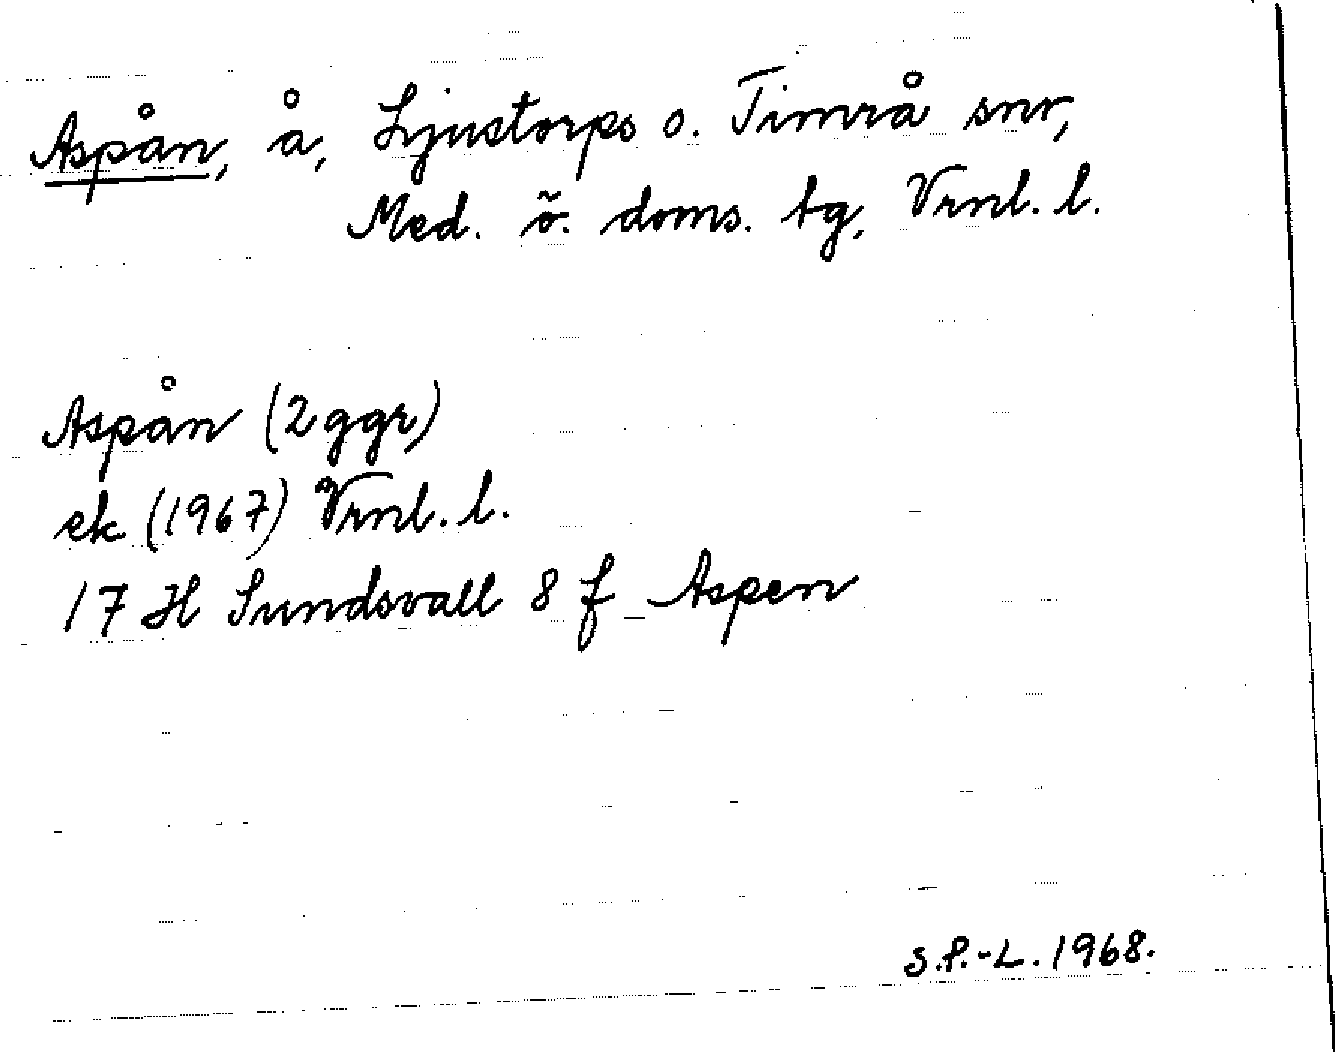 Aspån, å, Ljustorps o. Timrå snr,
Med. ö. doms. tg, Vrnl. l.
Aspån (2ggr)
ek (1967) Vrnl. l.
17 H Sundsvall 8 f Aspen
S.P.-L. 1968.